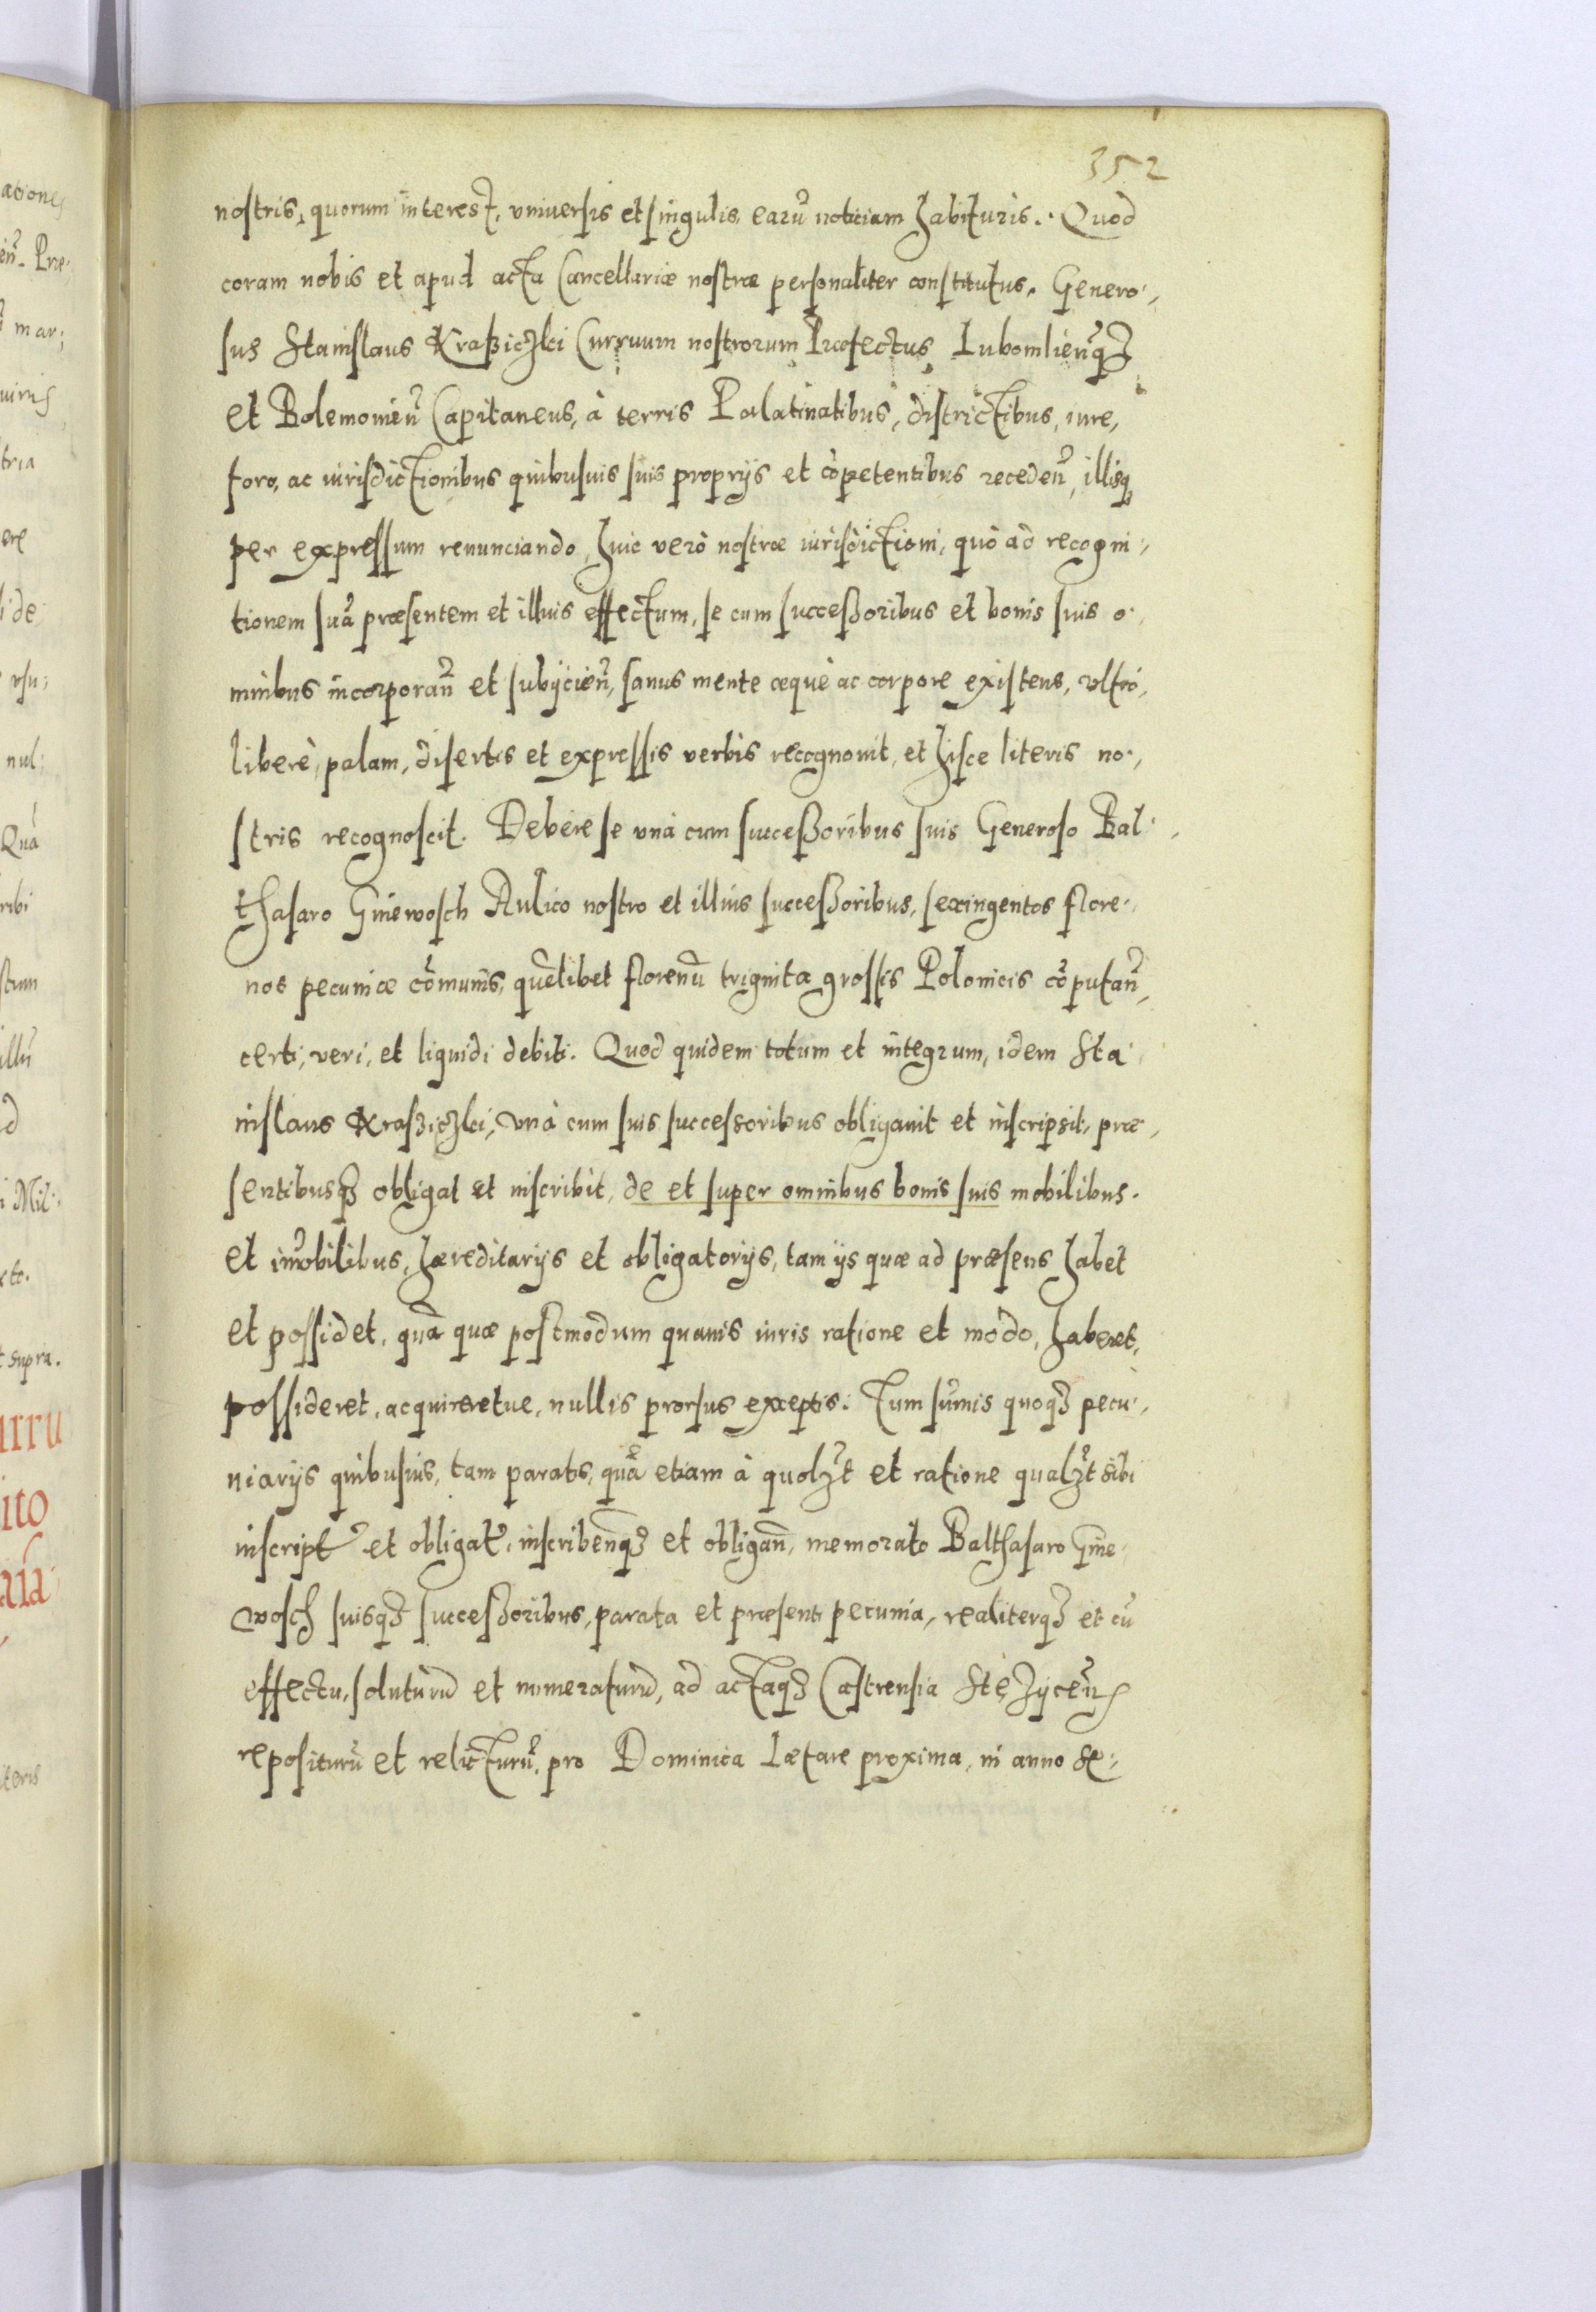 352
nostris, quorum interest, vniuersis et singulis, earũ noticiam habituris. Quod
coram nobis et apud acta Cancellariæ nostræ personaliter constitutus, Genero,
sus Stanislaus Kraßiczki Curruum nostrorum Præfectus, Lubomlieñq3
et Bolemonieñ Capitaneus, à terris Palatinatibus, districtibus, iure,
foro, ac iurisdictionibus quibusuis suis proprijs et cõpetentibus recedeñ, illisq3
per expressum renunciando, huic verò nostræ iurisdictioni, quò ad recogni,
tionem suã præsentem et illius effectum, se cum succeßoribus et bonis suis o,
mnibus incorporañ et subijcieñ, sanus mente æquè ac corpore existens, vltrò,
liberè, palam, disertis et expressis verbis recognouit, et hisce literis no,
stris recognoscit. Debere se vnà cum succeßoribus suis Generoso Bal,
thasaro Gniewosch Aulico nostro et illius succeßoribus, sexingentos flore,
nos pecuniæ cõmunis, quẽlibet florenũ triginta grossis Polonicis cõputañ,
certi, veri, et liquidi debiti. Quod quidem totum et integrum, idem Sta
nislaus Kraßiczki, vnà cum suis successoribus obligauit et inscripsit, præ,
sentibusq3 obligat et inscribit, de et super omnibus bonis suis mobilibus.
et im̃obilibus, hæreditarijs et obligatorijs, tam ijs quæ ad præsens habet
et possidet, quã quæ postmodum quauis iuris ratione et modo, haberet,
possideret, acquireretue, nullis prorsus exceptis. Tum sum̃is quoq3 pecu,
niarijs quibusuis, tam paratis, quã etiam à quolz̃t et ratione qualz̃t sibi
inscript̃ et obligat̃, inscribeñq3 et obligañ, memorato Balthasaro Gnie,
wosch suisq3 succeßoribus, parata et præsenti pecunia, realiterq3 et cũ
effectu, soluturũ et numeraturũ, ad actaq3 Castrensia Stężyceñs
repositurũ et relicturũ, pro Dominica Lætare proxima, in anno se,